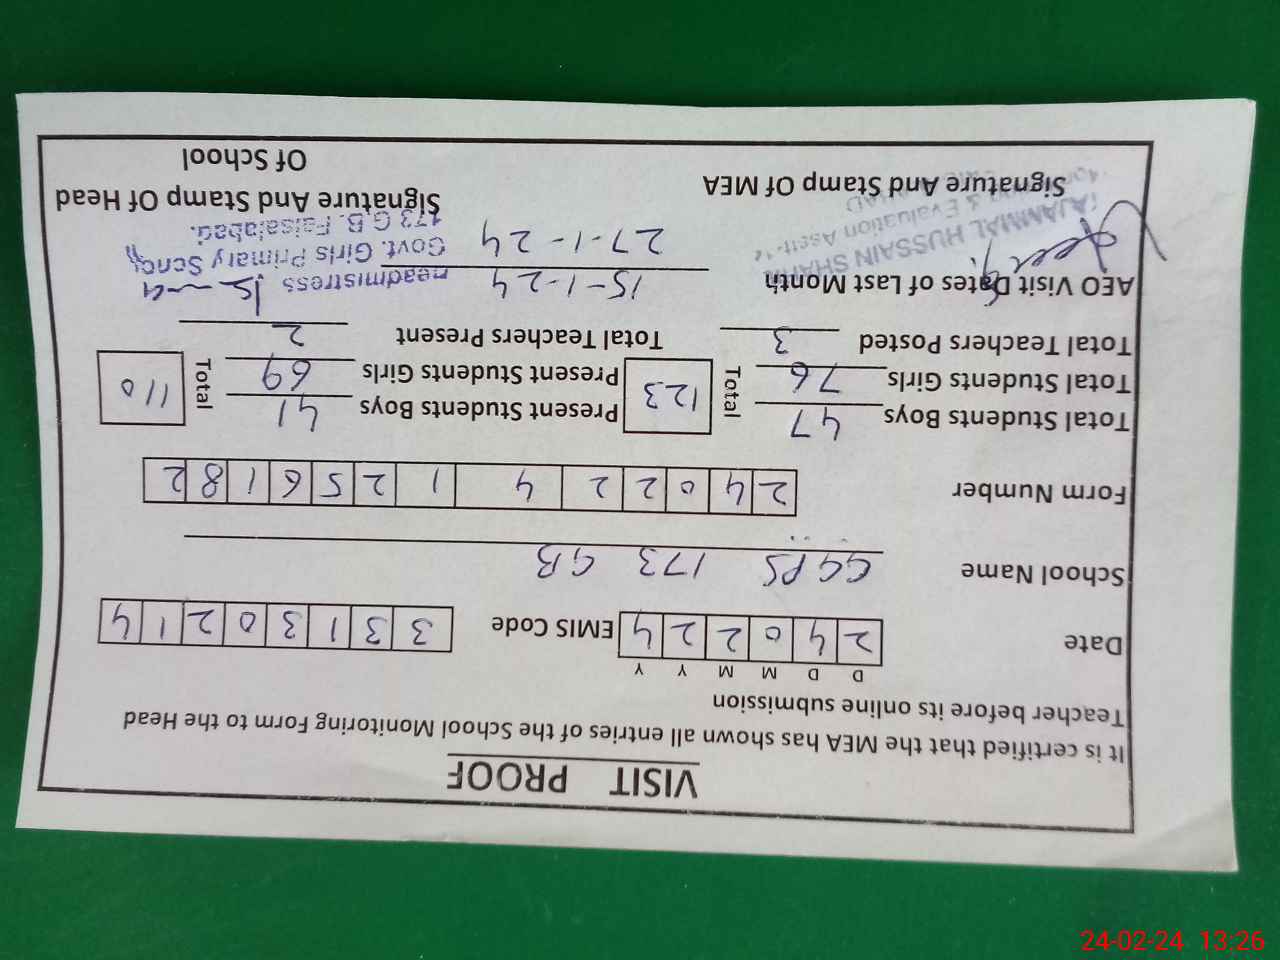 VISIT PROOF
It is certified that the MEA has shown all entries of the School Monitoring Form to the Head
Teacher before its online submission
D D M M Y Y
Date 2 4 0 2 2 4 EMIS Code 3 3 1 3 0 2 1 4
School Name GGPS 173 GB
Form Number 2 4 0 2 2 4 1 2 5 6 1 8 2
Total Students Boys 47 Total 123 Present Students Boys 41 Total 110
Total Students Girls 76 Present Students Girls 69
Total Teachers Posted 3 Total Teachers Present 2
AEO Visit Dates of Last Month 15-1-24
27-1-24
TAJAMMAL HUSSAIN
& Evaluation Asstt
Headmistress
Govt. Girls Primary School
173 G.B. Faisalabad.
Signature And Stamp Of MEA
Signature And Stamp Of Head
Of School
24-02-24 13:26